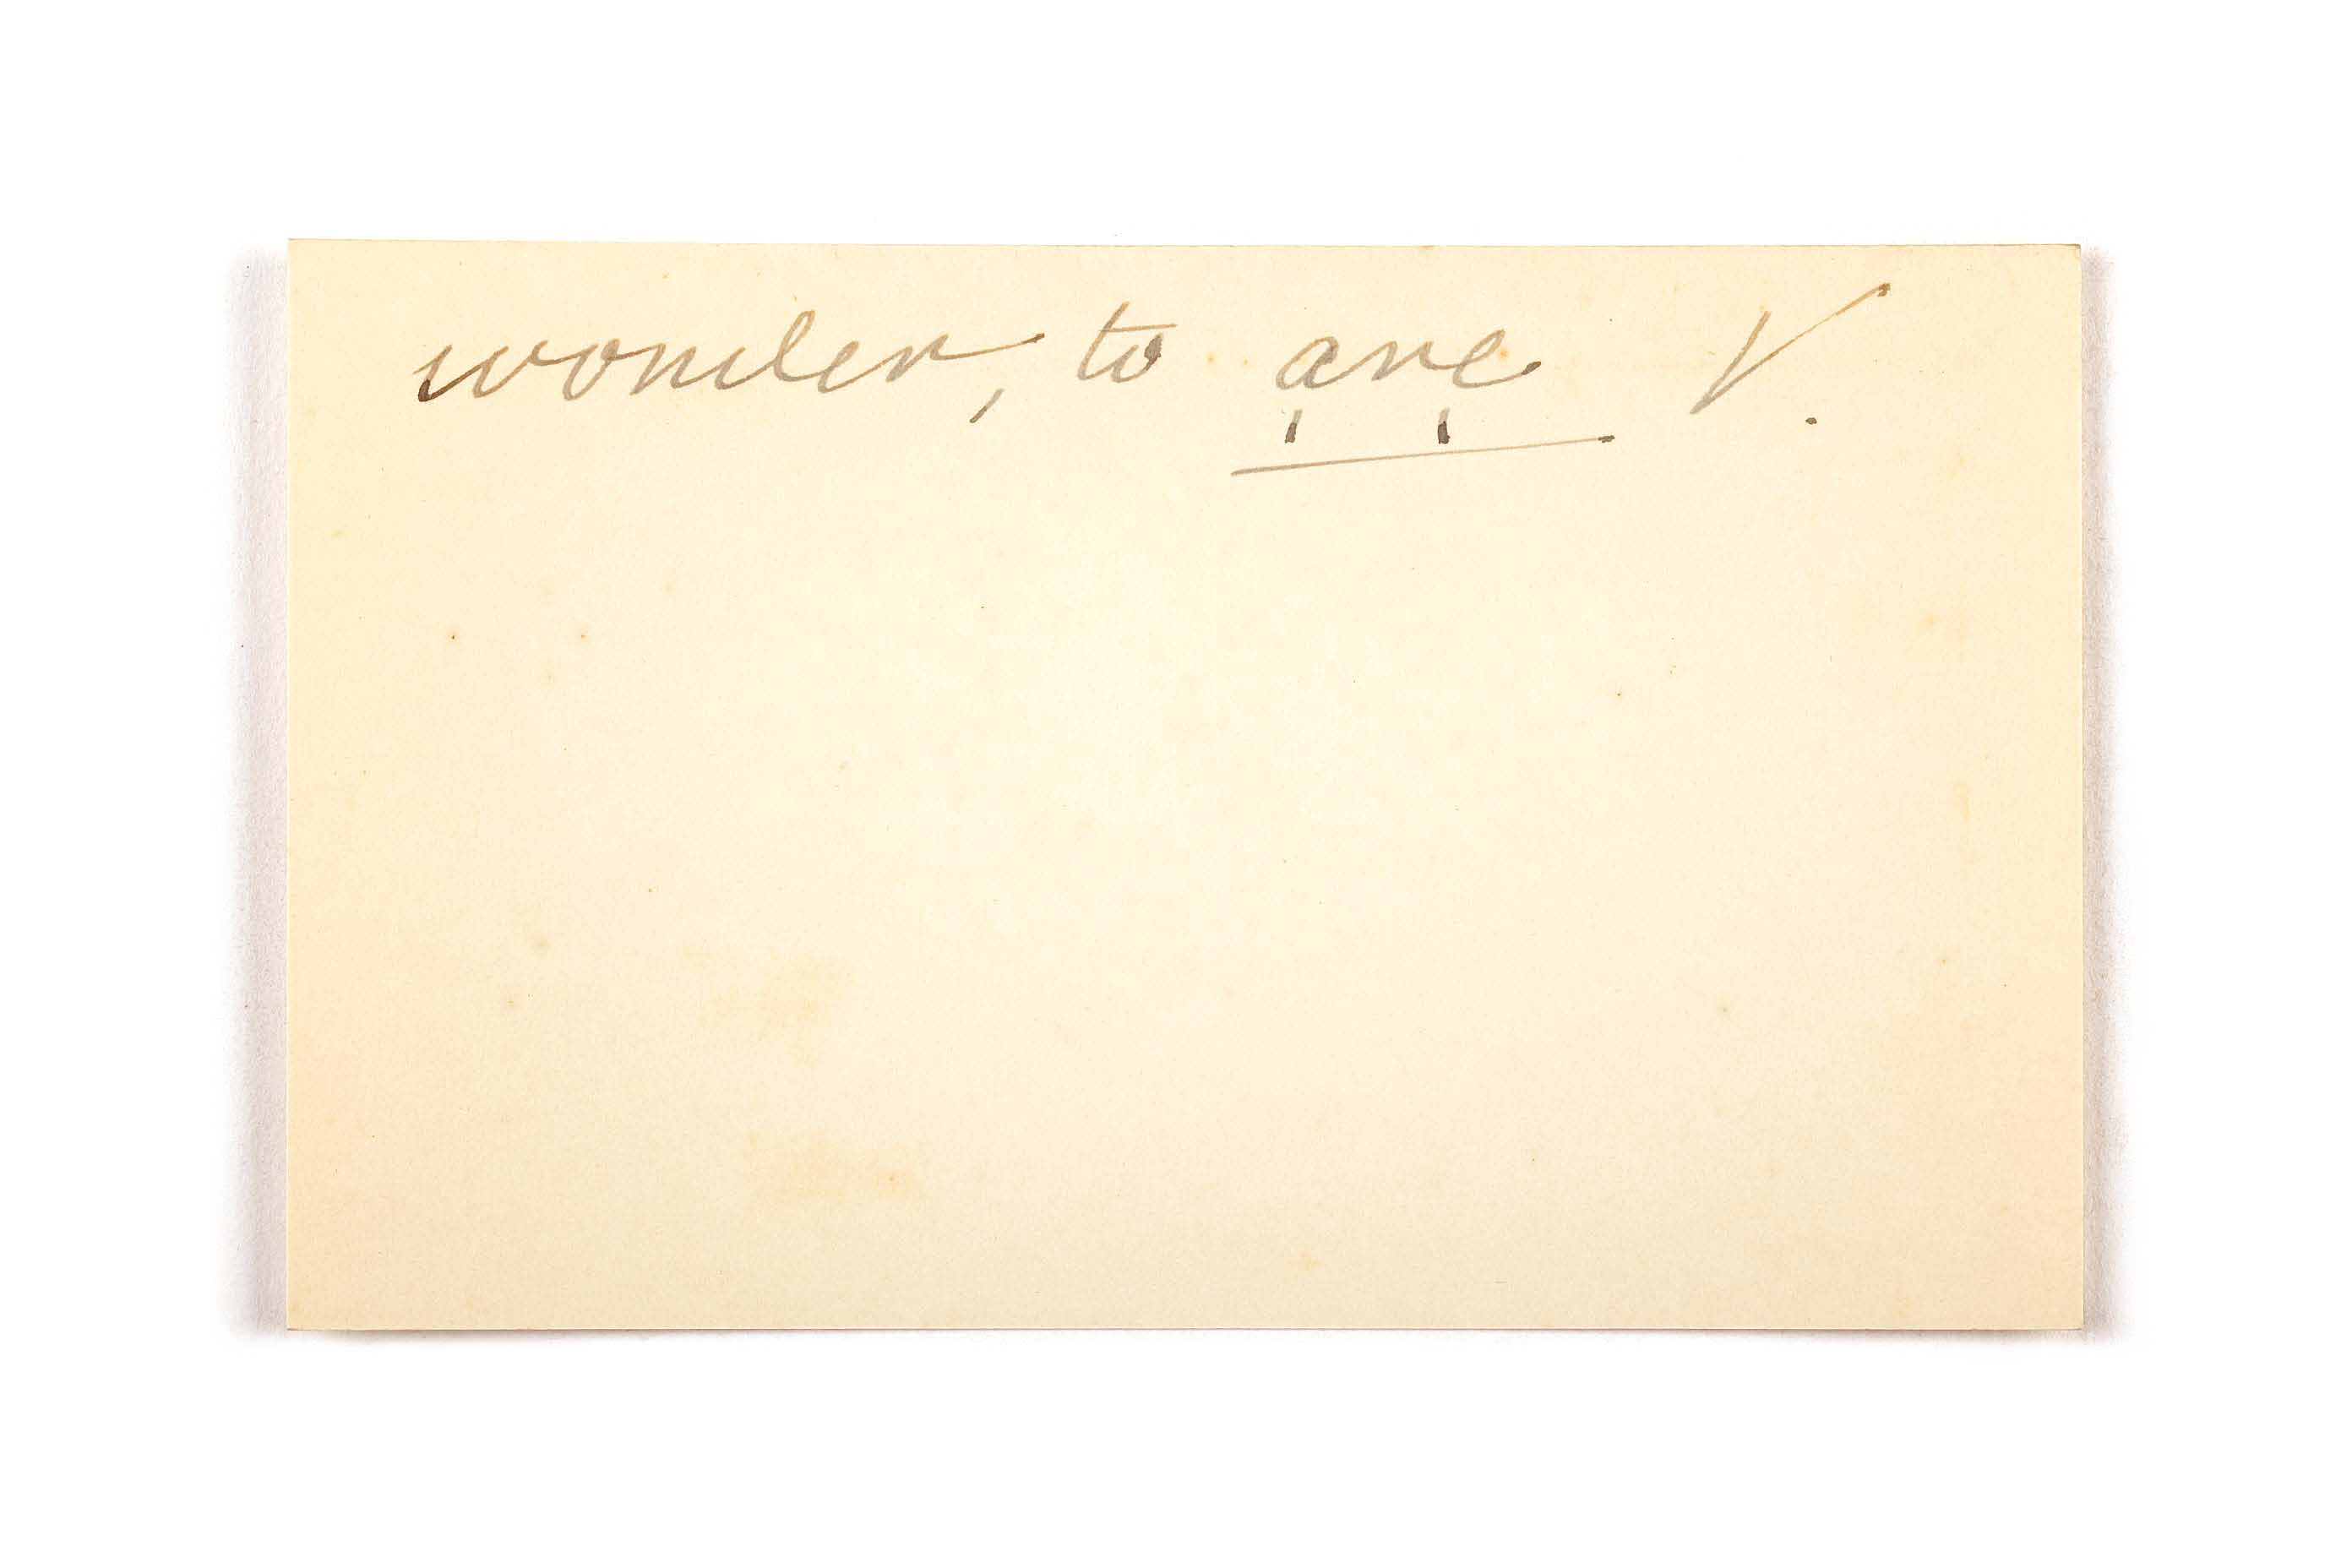 wonder, to a̩re̩ V.